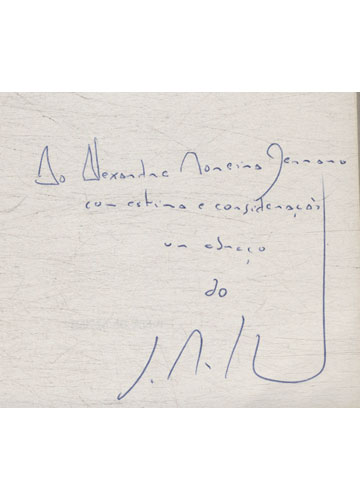 Ao Alexandre Moreira Germano
com estima e consideração
um abraço
do